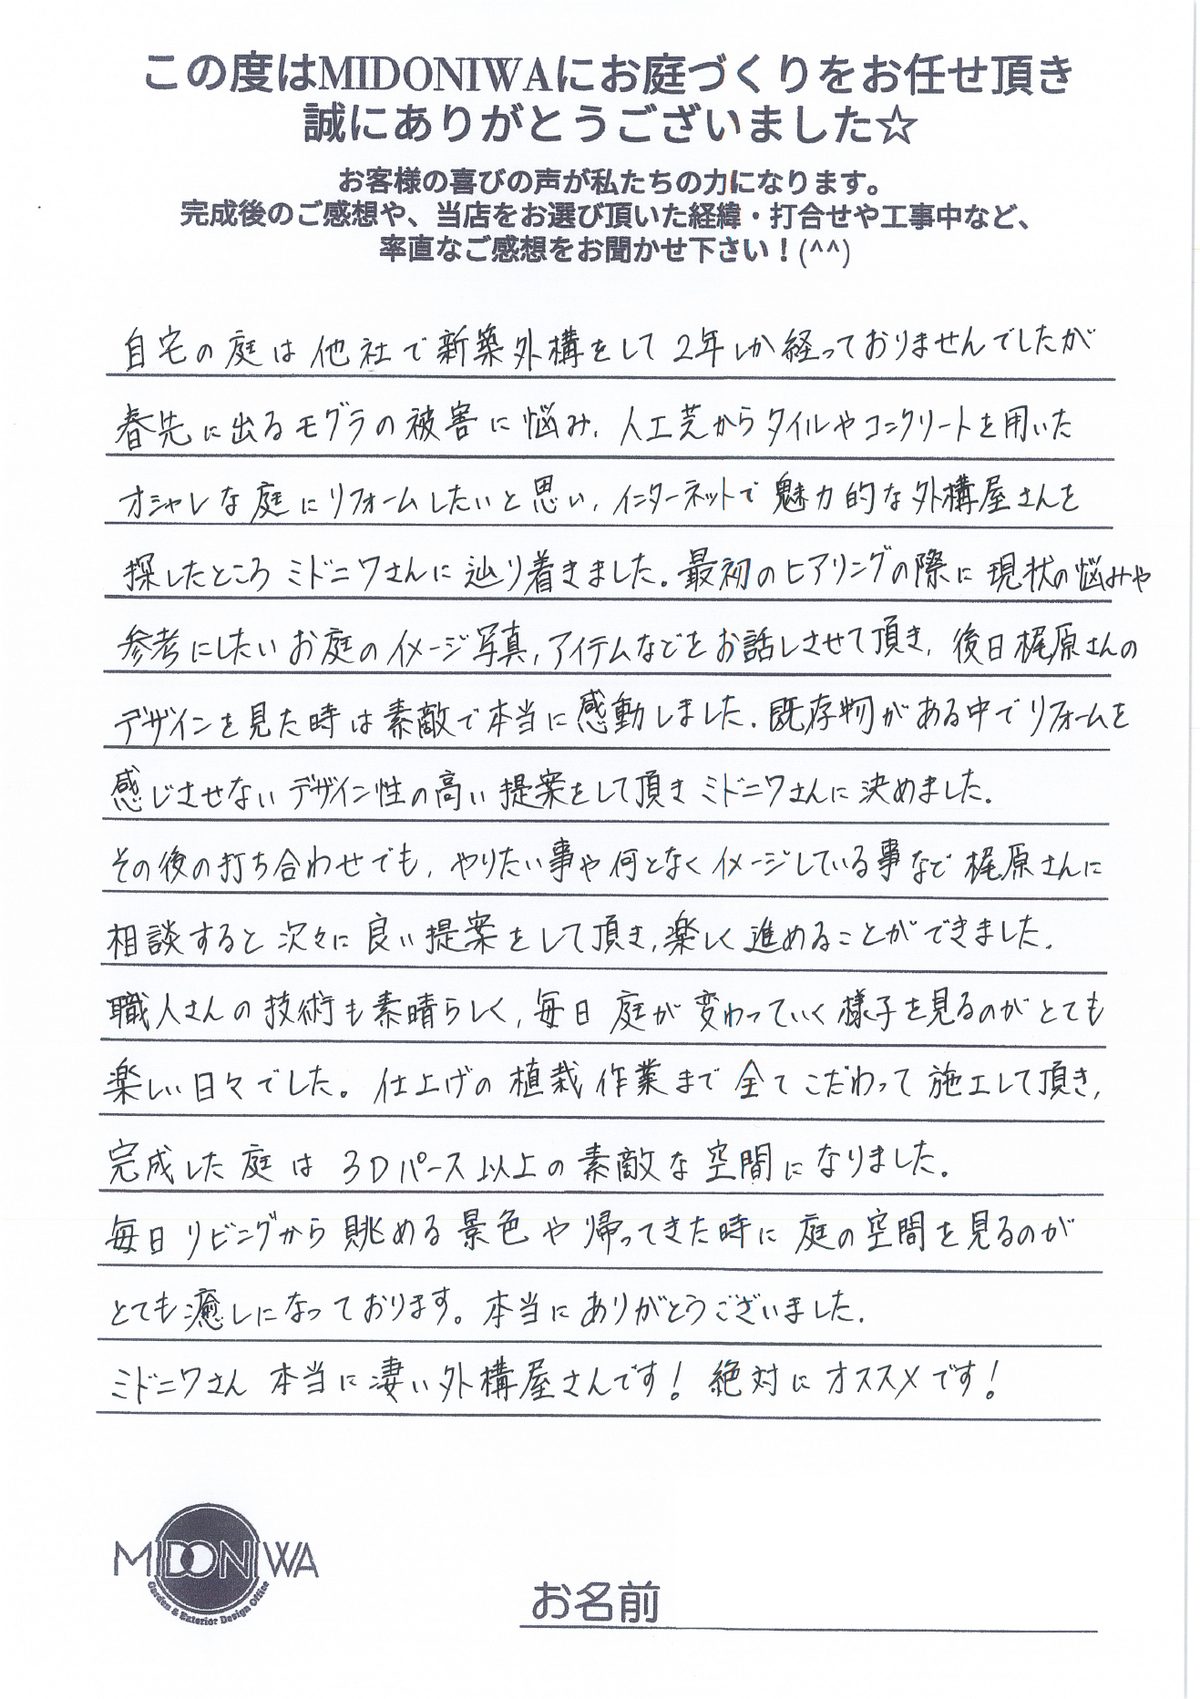 この度はMIDONIWAにお庭づくりをお任せ頂き
誠にありがとうございました☆
お客様の喜びの声が私たちの力になります。
完成後のご感想や、当店をお選び頂いた経緯・打合せや工事中など、
率直なご感想をお聞かせ下さい！(^^)
自宅の庭は他社で新築外構をして2年しか経っておりませんでしたが
春先に出るモグラの被害に悩み、人工芝からタイルやコンクリートを用いた
オシャレな庭にリフォームしたいと思い、インターネットで魅力的な外構屋さんを
探したところミドニワさんに辿り着きました。最初のヒアリングの際に現状の悩みや
参考にしたいお庭のイメージ写真、アイテムなどをお話しさせて頂き、後日梶原さんの
デザインを見た時は素敵で本当に感動しました。既存物がある中でリフォームを
感じさせないデザイン性の高い提案をして頂きミドニワさんに決めました。
その後の打ち合わせでも、やりたい事や何となくイメージしている事など梶原さんに
相談すると次々に良い提案をして頂き、楽しく進めることができました。
職人さんの技術も素晴らしく、毎日庭が変わっていく様子を見るのがとても
楽しい日々でした。仕上げの植栽作業まで全てこだわって施工して頂き、
完成した庭は3Dパース以上の素敵な空間になりました。
毎日リビングから眺める景色や帰ってきた時に庭の空間を見るのが
とても癒しになっております。本当にありがとうございました。
ミドニワさん本当に凄い外構屋さんです！絶対にオススメです！
MIDONIWA
Garden & Exterior Design Office
お名前